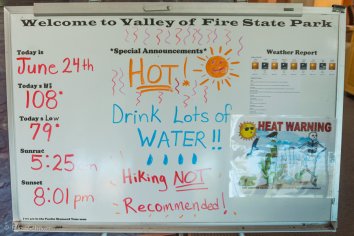 Welcome to Valley of Fire State Park
Today is
June 24th
Today's Hi
108°
Today's Low
79°
Sunrise
5:25 am
Sunset
8:01 pm
*Special Announcements*
HOT!
Drink Lots of
WATER!!
Hiking NOT
Recommended!
Weather Report
HEAT WARNING